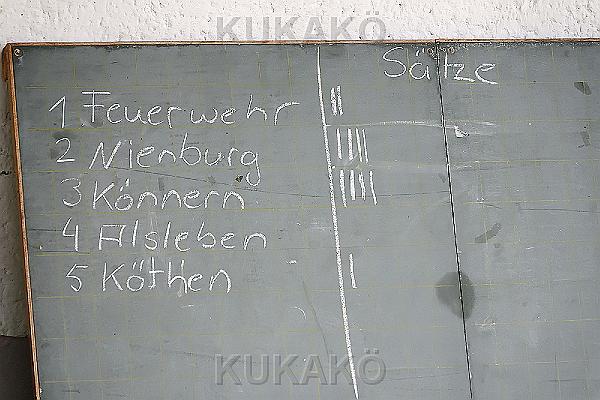 KUKAKÖ
Sätze
1 Feuerwehr ||
2 Nienburg ||||
3 Könnern ||||
4 Alsleben
5 Köthen |
KUKAKÖ